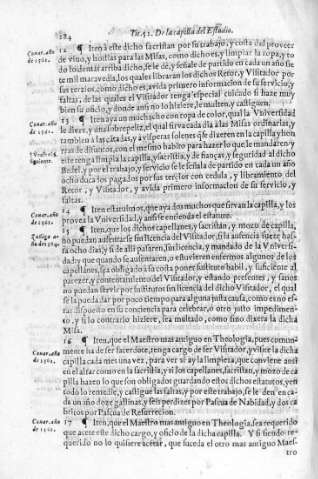 284 Tit. 51. De la capilla del Estudio.
Conar. año de 1561.
12 ¶ Iten a este dicho sacristan por su trabajo, y costa del proueer
de vino, y hostias para las Missas, como dicho es, y limpiar la ropa, y to
do lo demas arriba dicho, se le de, y señale de partido en cada vn año sie
te mil marauedis, los quales libraran los dichos Retor, y Visitador por
sus tercios, como dicho es, auida primero informacion de su seruicio, y
faltas, de las quales el Visitador tenga especial cuidado si haze muy
bien su oficio, y donde ansi no lo hiziere, le multen, y castiguen.
Conar. año de 1561.
13 ¶ Iten aya vn muchacho con ropa de color, qual la Vniuersidad
le diere, y vna sobrepelliz, el qual sirua cada dia a las Missas ordinarias, y
tambien a las citadas, y a visperas solenes que se dizen en la capilla, y hon
ras de difuntos, con el mesmo habito para hazer lo que le mandaren, y
este tenga limpia la capilla, y sacristia, y de fianças, y seguridad al dicho
Bedel, y por el trabajo, y seruicio se le señala de partido en cada vn año
ocho ducados pagados por sus tercios con cedula, y libramiento del
Retor, y Visitador, y auida primero informacion de su seruicio, y
faltas.
Conar. año de 1561.
14 ¶ Iten estatuimos, que aya dos muchos que siruan la capilla, y los
prouea la Vniuersidad, y ansi se entienda el estatuto.
15 ¶ Iten, que los dichos capellanes, y sacristan, y moço de capilla,
no puedan ausentarse sin licencia del Visitador, si la ausencia fuere has-
ta ocho dias, y si de alli passare, sin licencia, y mandado de la Vniuersi-
dad: y que quando se ausentaren, o estuuieren enfermos algunos de los
capellanes, sea obligado a su costa poner sustituto habil, y suficiente al
parecer, y contentamiento del Visitador, y estando presentes, y sanos
no puedan seruir por sustitutos sin licencia del dicho Visitador, el qual
se la pueda dar por poco tiempo para alguna justa causa, como es no es-
tar dispuesto en su conciencia para celebrar, o otro justo impedimen-
to, y si lo contrario hiziere, sea multado, como sino dixera la dicha
Missa.
Conar. año de 1561.
16 ¶ Iten, que el Maestro mas antiguo en Theologia, pues comun-
mente ha de ser sacerdote, tenga cargo de ser Visitador, y visite la dicha
capilla cada mes vna vez, para ver si ay la limpieza que conuiene ansi
en el altar como en la sacristia, y si los capellanes, sacristan, y moço de ca
pilla hazen lo que son obligados guardando estos dichos estatutos, y en
todo lo remedie, y castigue las faltas, y por este trabajo, se le den en ca-
da vn año doze gallinas, y seis perdizes por Pascua de Nabidad, y dos ca
britos por Pascua de Resurrecion.
Conar. año de 1561.
17 ¶ Iten, que el Maestro mas antiguo en Theologia, sea requerido
que acete este dicho cargo, y oficio de la dicha capilla. Y si siendo re-
querido no lo quisiere acetar, que suceda el otro mas antiguo Maes-
tro